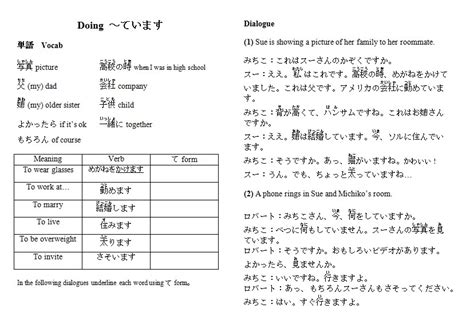 Doing ～ています
単語 Vocab
写真 picture 高校の時 when I was in high school
父 (my) dad 会社 company
姉 (my) older sister 子供 child
よかったら if it's ok 一緒に together
もちろん of course
Meaning Verb て form
To wear glasses めがねをかけます
To work at… 勤めます
To marry 結婚します
To live 住みます
To be overweight 太ります
To invite さそいます
In the following dialogues underline each word using て form.
Dialogue
(1) Sue is showing a picture of her family to her roommate.
みちこ：これはスーさんのかぞくですか。
スー：ええ。私はこれです。高校の時、めがねをかけて
いました。これは父です。アメリカの会社に勤めていま
す。
みちこ：背が高くて、ハンサムですね。これはお姉さん
ですか。
スー：ええ。姉は結婚しています。今、ソルに住んでい
ます。
みちこ：そうですか。あっ、猫がいますね。かわいい！
スー：うん。でも、ちょっと太っていますね…
(2) A phone rings in Sue and Michiko's room.
ロバート：みちこさん、今、何をしていますか。
みちこ：べつに何もしていません。スーさんの写真を見
ています。
ロバート：そうですか。おもしろいビデオがあります。
よかったら、見ませんか。
みちこ：いいですね。行きますよ。
ロバート：あっ、もちろんスーさんもさそってください。
みちこ：はい。すぐ行きますよ。